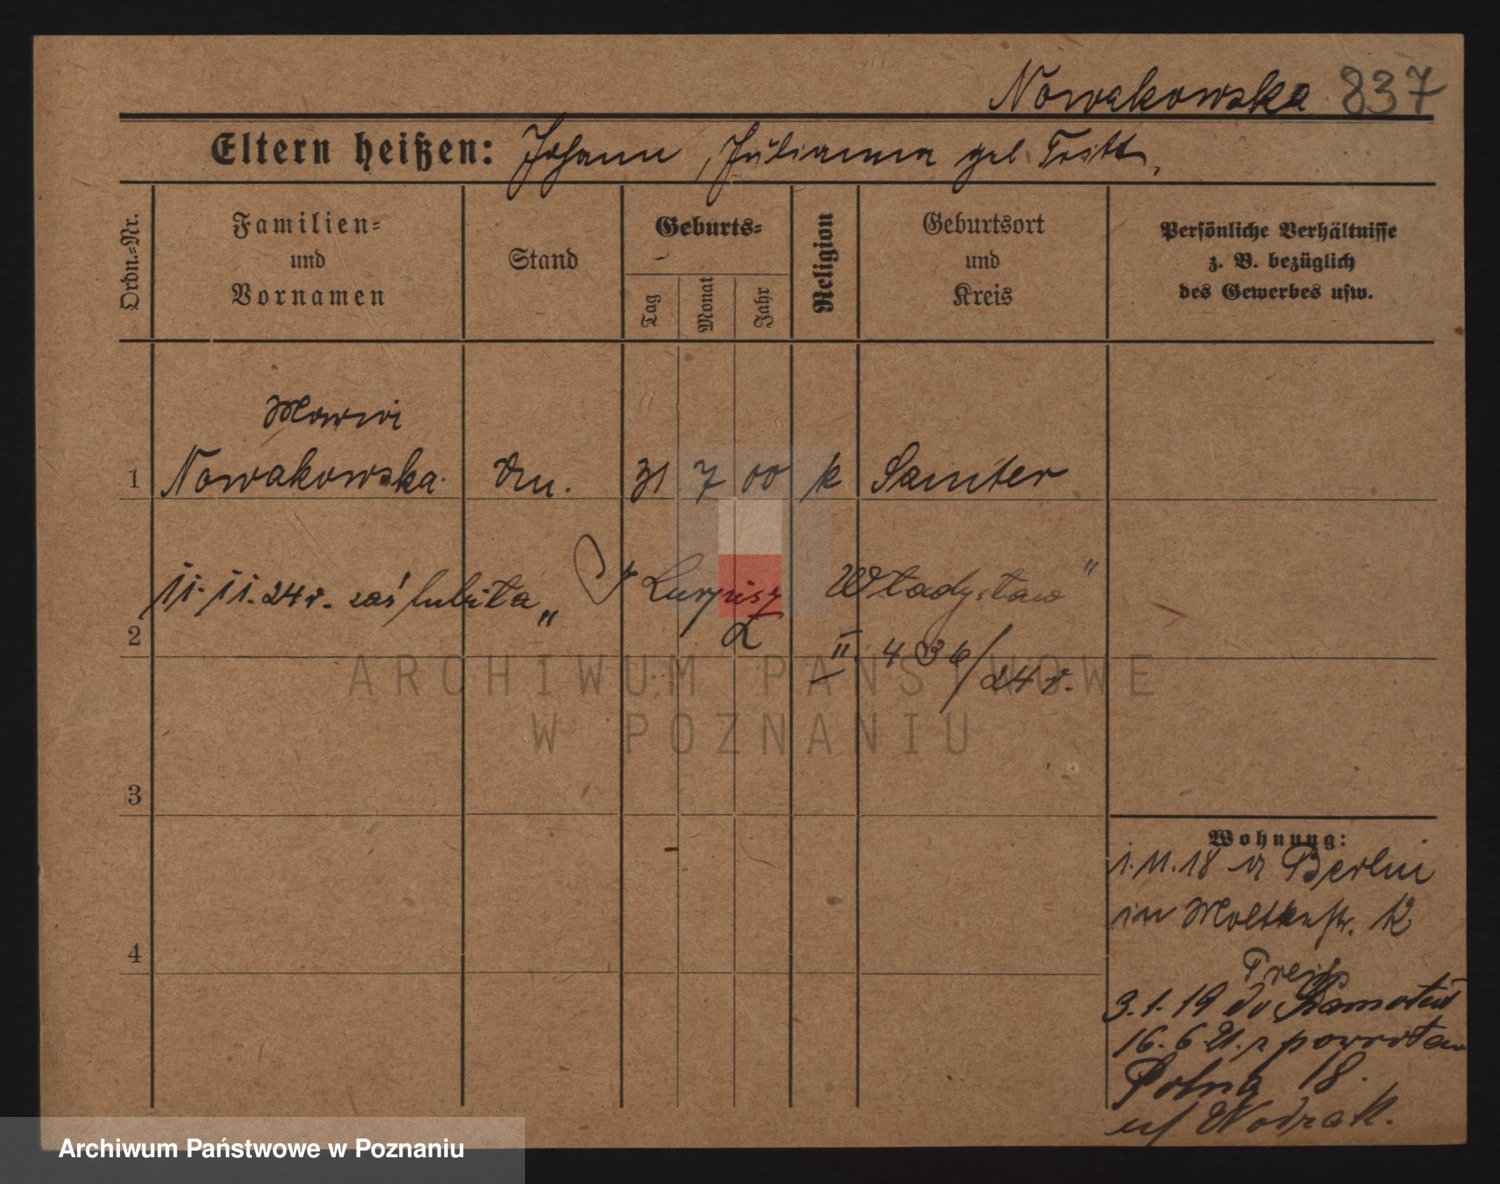 Nowakowska 837
Eltern heißen: Johann, Julianna geb. Tritt,
Ordn.-Nr.
Familien-
und
Vornamen
Stand
Geburts-
Tag
Monat
Jahr
Religion
Geburtsort
und
Kreis
Persönliche Verhältnisse
z. B. bezüglich
des Gewerbes usw.
Marie
1 Nowakowska. 31 7 00 k Samter
11.11.24 r. zaślubiła „ Władysław "
2
II 436/24 r.
ARCHIWUM PAŃSTWOWE
W POZNANIU
3
4
Wohnung:
1.11.18 Berlin
in Moltkestr. 12
3.1.19 do
16.6.21. z powrotem
Polna 18.
Archiwum Państwowe w Poznaniu